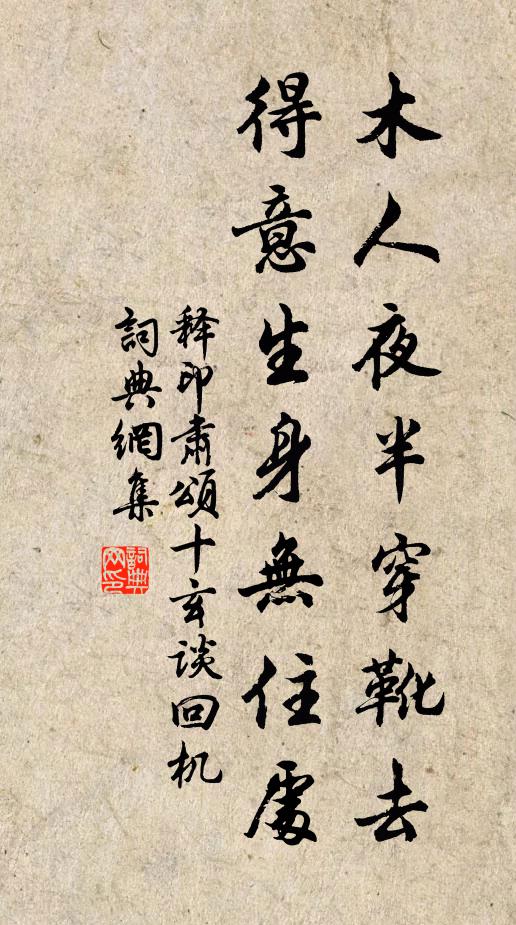 木人夜半穿靴去
得意生身無住處
释印肃頌十玄谈回机
詞典網集
詞典网印